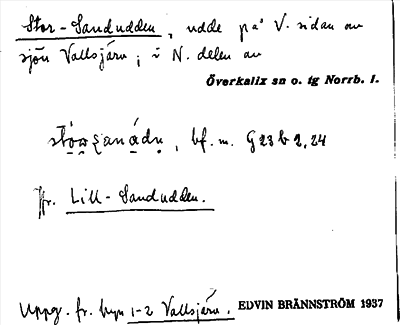 Stor-Sandudden, udde på V. sidan av
sjön Vallsjärv; i N. delen av
Överkalix sn o. tg Norrb. l.
bf. m. G 23 b 2, 24
Jfr. Lill-Sandudden.
Uppg. fr. byn 1-2 Vallsjärv. EDVIN BRÄNNSTRÖM 1937